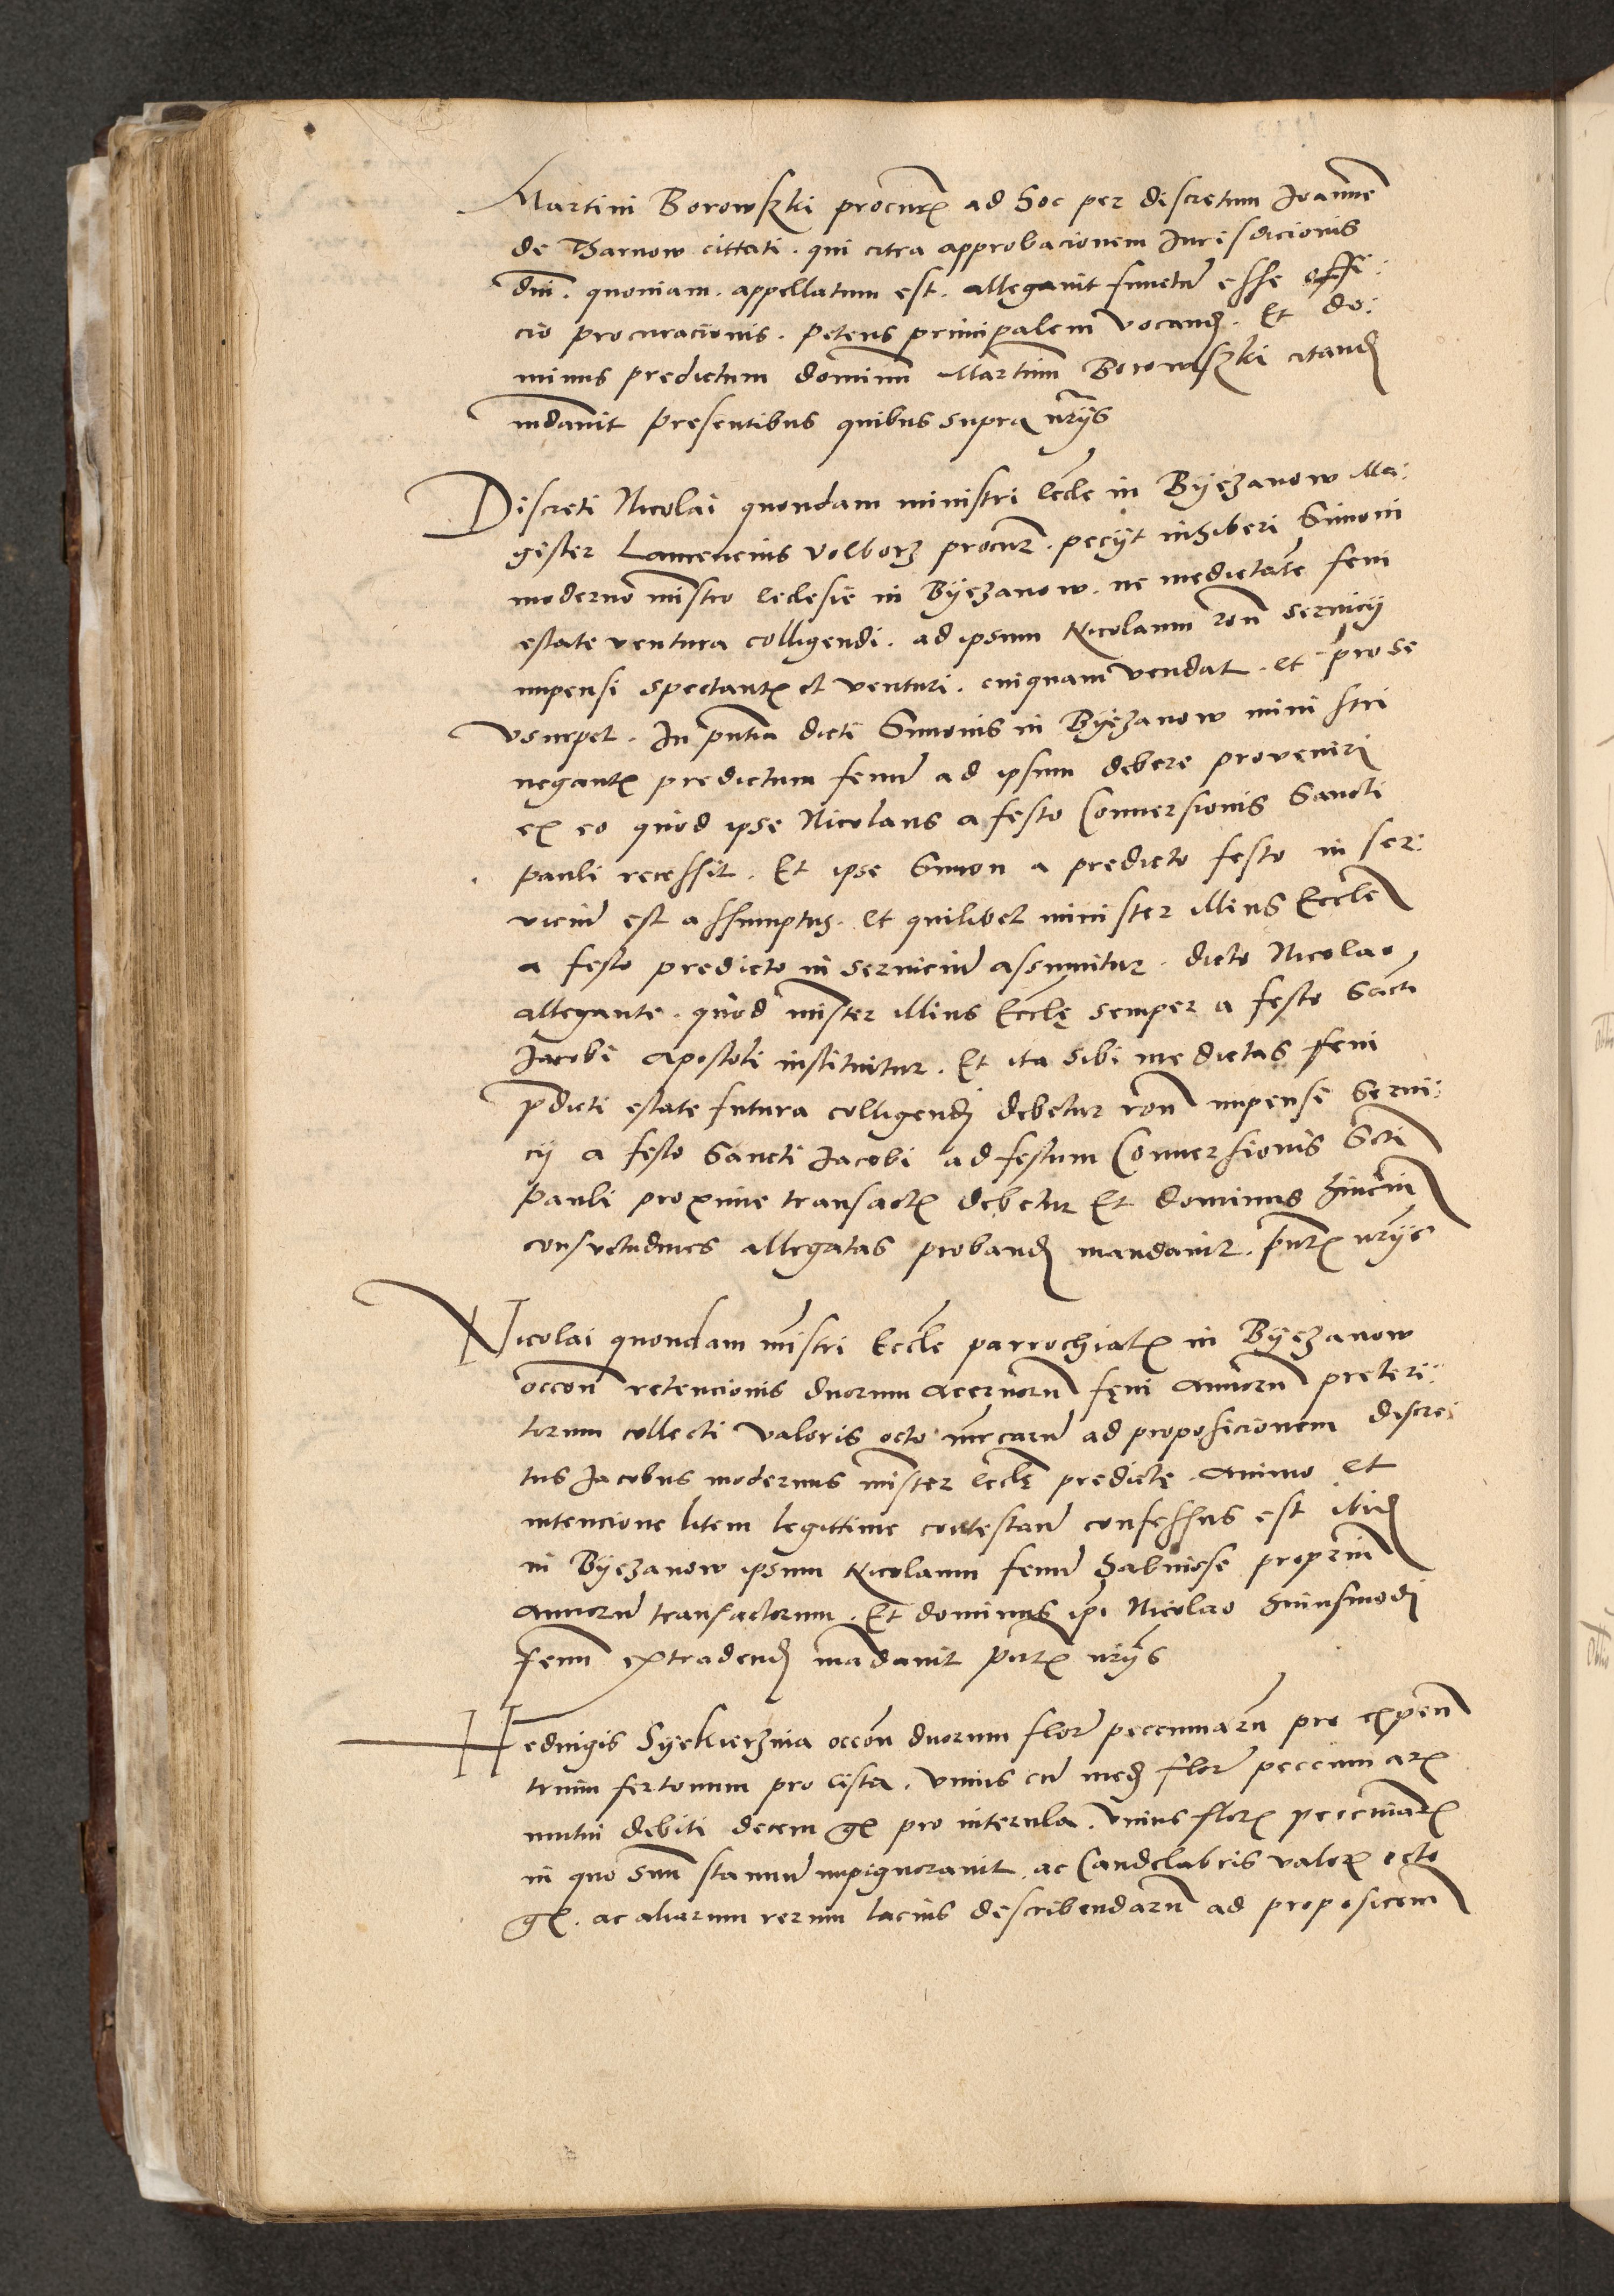 Martini Borowszki procur̄ ad hoc per discretum Ioannē
de Tharnow cittati. qui citra approbacionem Iurisdicionis
dni. quoniam. appellatum est. allegavit functū esse offi:
cio procuracionis. petens principalem vocand. Et do:
minus predictum dominū Martinū Borowszki citand
mdavit presentibus quibus supra nr̄ijs
Discreti Nicolai quondam ministri eccle in Byezanow Ma:
gister Laurencius Volborz procur̄. pecijt inhiberi Simoni
moderno mistro ecclesie in Byezanow. ne medietatē feni
estate ventura colligendi. ad ipsum Nicolaum ron̄ servicij
impensi spectant̄ et venturi. cuiquam vendat. et pro se
vsurpet. In pntia dicti Simonis in Byezanow ministri
negant̄ predictum fenū ad ipsum debere proveniri
ex eo quod ipse Nicolaus a festo Conversionis Sancti
Pauli recessit. Et ipse Simon a predicto festo in ser:
viciū est assumptus. et quilibet minister illius Eccle
a festo predicto in serviciū assumitur. dicto Nicolao
allegante. quod mister illius Eccle semper a festo Sacti
Iacobi Apostoli instituitur. Et ita sibi medietas feni
pdicti estate futura colligend debetur ron̄ impensi Servi:
cij a festo Sancti Iacobi ad festum Conversionis Scti
Pauli proxime transact̄ debetur Et dominus hincin
consvetudines allegatas proband mandavit. pnt̄ nr̄ijs
Nicolai quondam mistri Eccle parrochial̄ in Byezanow
occon̄ retencionis duorum acervorū feni annorū preteri:
torum collecti valoris octo mrcarū ad proposicionem discre:
tus Iacobus modernus mister eccle predicte. animo et
intencione litem legittime contestan̄ confessus est ibid
in Byezanow ipsum Nicolaum fenū habuisse propriū
annorū transactorum. Et dominus ipi Nicolao huiusmodi
fenū extradend madavit pnt̄ nr̄ijs
Hedvigis Syekierznia occon̄ duorum flor̄ peccuniarū pro expen̄
trium fertonum pro cista. vnius cū med flor̄ peccuniar̄
mutui debiti decem gr̄ pro interula. vnius flor̄ peccuniar̄
in quo suū stannū impignoravit. ac Candelabris valor̄ octo
gr̄. ac aliarum rerum lacius describendarū ad proposicem